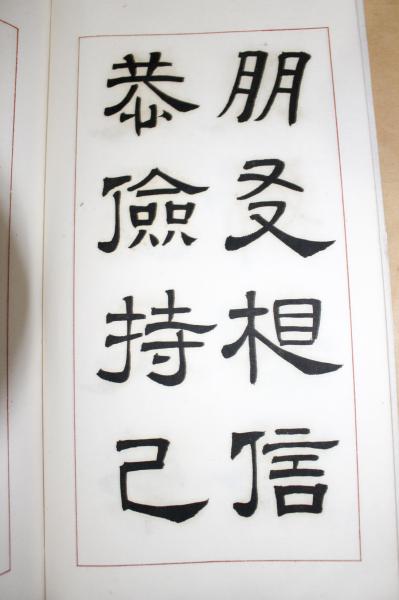 朋友相信
恭儉持己